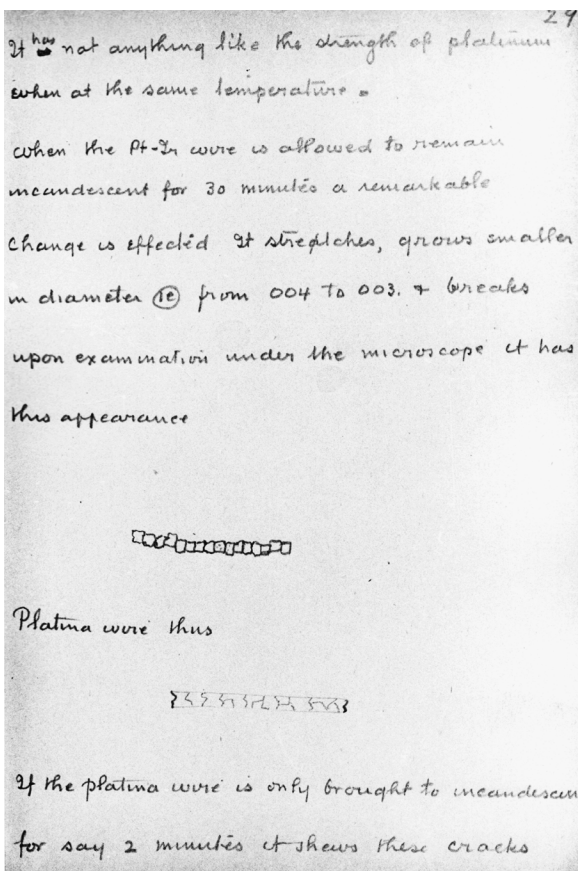 29
It has not anything like the strength of platinum
when at the same temperature.
when the Pt-Ir wire is allowed to remain
incandescent for 30 minutes a remarkable
change is effected It stretches, grows smaller
in diameter ie from 004 to 003. & breaks
upon examination under the microscope it has
this appearance
Platina wire thus
If the platina wire is only brought to incandescen
for say 2 minutes it shews these cracks